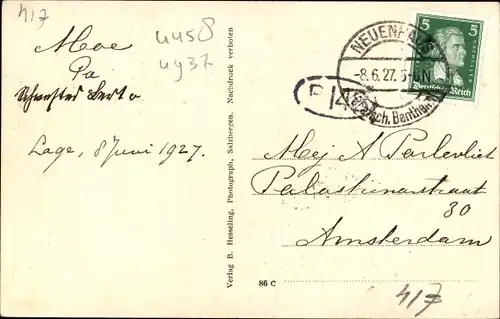 417
4458
4437
Moe
Pa
Schwester Berta
Lage, 8 Juni 1927.
Verlag B. Hesseling, Photograph, Salzbergen. Nachdruck verboten
86 C
NEUENHAUS
-8.6.27.5-6N
(Grafsch. Bentheim)
P 14
5 5
Deutsches Reich
Mej A Parlevliet
Palestrinastraat
30
Amsterdam
417